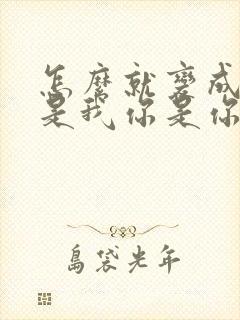 怎麼就變成
是我你是你
島袋光年